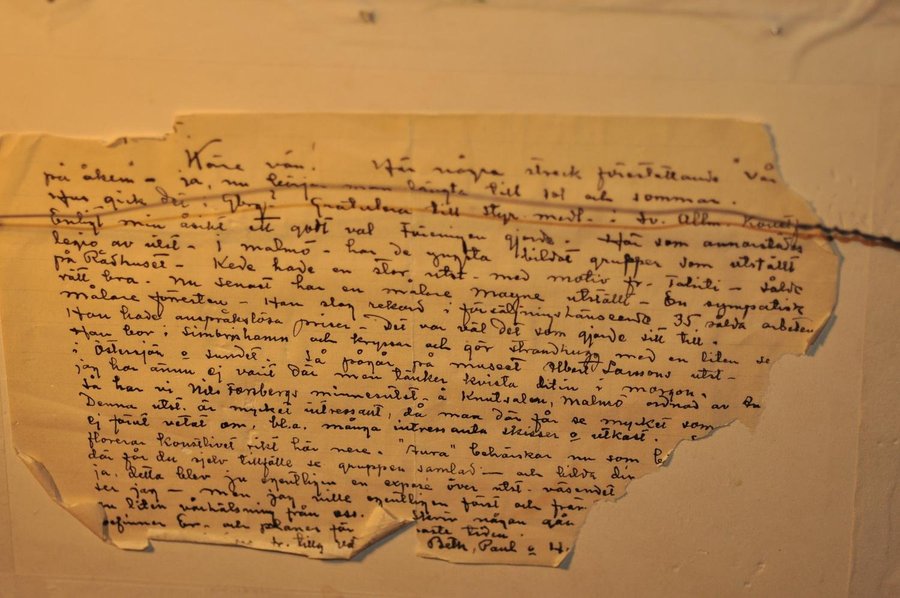 Käre vän! Här några streck föreställande "Vår
på åkern" - ja, nu börjar man längta till sol och sommar.
Hur gick det i Gbg? Gratulera till styr. medl. i Sv. Allm. Konstf
Enligt min åsikt ett gott val Föreningen gjorde. Här som annorstädes
legio av utst. - i Malmö - har de yngsta bildat grupper som utställt
på Rådhuset. - Kede hade en stor utst. med motiv fr. Tahiti - sålde
rätt bra. Nu senast har en målare Mayne utställt - En sympatisk
målare förresten - Han slog rekord i försäljningshänseende 35 sålda arbeten
Han hade anspråkslösa priser. Det var väl det som gjorde sitt till.
Han bor i Simbrishamn och kryssar och gör strandhugg med en liten se
i Östersjön o Sundet. Så pågår på museet Albert Larsons utst -
jag har ännu ej varit där men tänker kvista ditin i morgon.
Så har vi Nils Forsbergs minnesutst. å Knutsalen, Malmö ordnad av
Denna utst. är mycket intressant, då man där får se mycket som
ej förut vetat om, bl.a. många intressanta skisser o utkast.
florerar konstlivet rikt här nere. "Aura" behärskar nu som
där får du själv tillfälle se gruppen samlad - och bilda din
ja, detta blev ju egentligen en exposé över utst-väsendet
ser jag - men jag ville egentligen först och främ
en liten vårhälsning från oss. någon gån
befinner Er - och planer för aste tiden.
Beth, Paul o H.